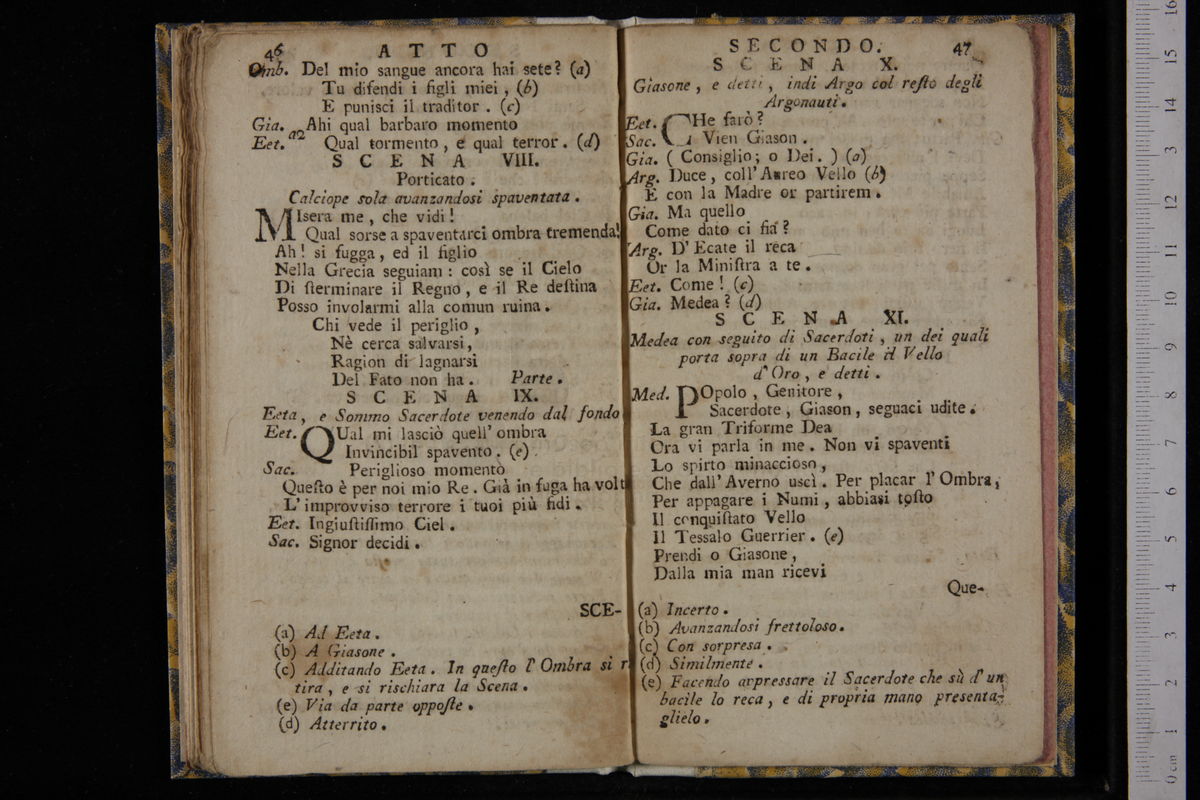 46 ATTO
Omb. Del mio sangue ancora hai sete? (a)
Tu difendi i figli miei, (b)
E punisci il traditor. (c)
Gia. a2 Ahi qual barbaro momento
Eet. Qual tormento, e qual terror. (d)
SCENA VIII.
Porticato.
Calciope sola avanzandosi spaventata.
MIsera me, che vidi!
Qual sorse a spaventarci ombra tremenda!
Ah! si fugga, ed il figlio
Nella Grecia seguiam: così se il Cielo
Di ſterminare il Regno, e il Re deſtina
Posso involarmi alla comun ruina.
Chi vede il periglio,
Nè cerca salvarsi,
Ragion di lagnarsi
Del Fato non ha. Parte.
SCENA IX.
Eeta, e Sommo Sacerdote venendo dal fondo
Eet. QUal mi lasciò quell' ombra
Invincibil spavento. (e)
Sac. Periglioso momento
Queſto è per noi mio Re. Già in fuga ha volt
L'improvviso terrore i tuoi più fidi.
Eet. Ingiuſtiſſimo Ciel.
Sac. Signor decidi.
SCE-
(a) Ad Eeta.
(b) A Giasone.
(c) Additando Eeta. In queſto l'Ombra si ri
tira, e si rischiara la Scena.
(e) Via da parte oppoſte.
(d) Atterrito.
SECONDO. 47
SCENA X.
Giasone, e detti, indi Argo col reſto degli
Argonauti.
Eet. CHe farò?
Sac. Vien Giason.
Gia. (Consiglio; o Dei.) (a)
Arg. Duce, coll'Aureo Vello (b)
E con la Madre or partirem.
Gia. Ma quello
Come dato ci fia?
Arg. D'Ecate il reca
Or la Miniſtra a te.
Eet. Come! (c)
Gia. Medea? (d)
SCENA XI.
Medea con seguito di Sacerdoti, un dei quali
porta sopra di un Bacile il Vello
d'Oro, e detti.
Med. POpolo, Genitore,
Sacerdote, Giason, seguaci udite.
La gran Triforme Dea
Ora vi parla in me. Non vi spaventi
Lo spirto minaccioso,
Che dall'Averno uscì. Per placar l'Ombra,
Per appagare i Numi, abbiasi toſto
Il conquiſtato Vello
Il Tessalo Guerrier. (e)
Prendi o Giasone,
Dalla mia man ricevi
Que-
(a) Incerto.
(b) Avanzandosi frettoloso.
(c) Con sorpresa.
(d) Similmente.
(e) Facendo appressare il Sacerdote che sù d'un
bacile lo reca, e di propria mano presenta-
glielo.
0 cm 1 2 3 4 5 6 7 8 9 10 11 12 13 14 15 16